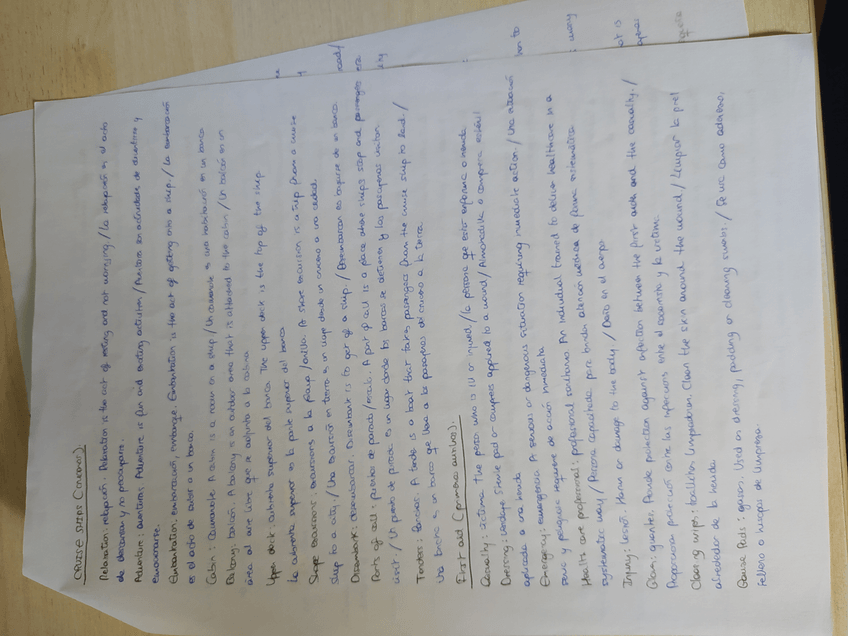 CRUISE SHIPS (crucero):
Relaxation: relajación. Relaxation is the act of resting and not worrying. / La relajación es el acto
de descansar y no preocuparse.
Adventure: aventura: Adventure is fun and exciting activities / Aventura son actividades de divertirse y
emocionarse.
Embarkation: embarcación, embarque. Embarkation is the act of getting onto a ship. / La embarcación
es el acto de subir a un barco.
Cabin: Camarote. A cabin is a room on a ship / Un camarote es una habitación en un barco
Balcony: balcón. A balcony is an outdoor area that is attached to the cabin / Un balcón es un
área al aire libre que se adjunta a la cabina
Upper deck: cubierta superior del barco. The upper deck is the top of the ship
La cubierta superior es la parte superior del barco
Shore excursions: excursiones a la playa / orilla. A shore excursion is a trip from a cruise
ship to a city. / Una excursión en tierra es un viaje desde un crucero a una ciudad.
Disembark: desembarcar. Disembark is to get off a ship. / Desembarcar es bajarse de un barco.
Ports of call: puertos de parada / escala. A port of call is a place where ships stop and passengers
visit / Un puerto de parada es un lugar donde los barcos se detienen y los pasajeros visitan.
Tenders: A tender is a boat that takes passengers from the cruise ship to land. /
Una es un barco que lleva a los pasajeros del crucero a la tierra.
First aid (primeros auxilios):
Casualty: víctima. The person who is ill or injured / la persona que está enferma o herida.
Dressing: vendaje. Sterile pad or compress applied to a wound / Almohadilla o compresa estéril
aplicada a una herida
Emergency: emergencia. A serious or dangerous situation requiring immediate action. / Una situación
seria y peligrosa requiere de acción inmediata
Health care professional: profesional sanitario. An individual trained to deliver healthcare in a
systematic way / Persona capacitada para brindar atención médica de forma sistemática
Injury: lesión. Harm or damage to the body / Daño en el cuerpo
Gloves: guantes. Provide protection against infection between the first aider and the casualty. /
Proporcionar protección contra las infecciones entre el socorrista y la víctima.
Cleansing wipes: toallitas limpiadoras. Clean the skin around the wound / Limpiar la piel
alrededor de la herida
Gauze Pads: gasas. Used as dressing, padding or cleaning swabs / Se usa como aderezo,
relleno o hisopos de limpieza.